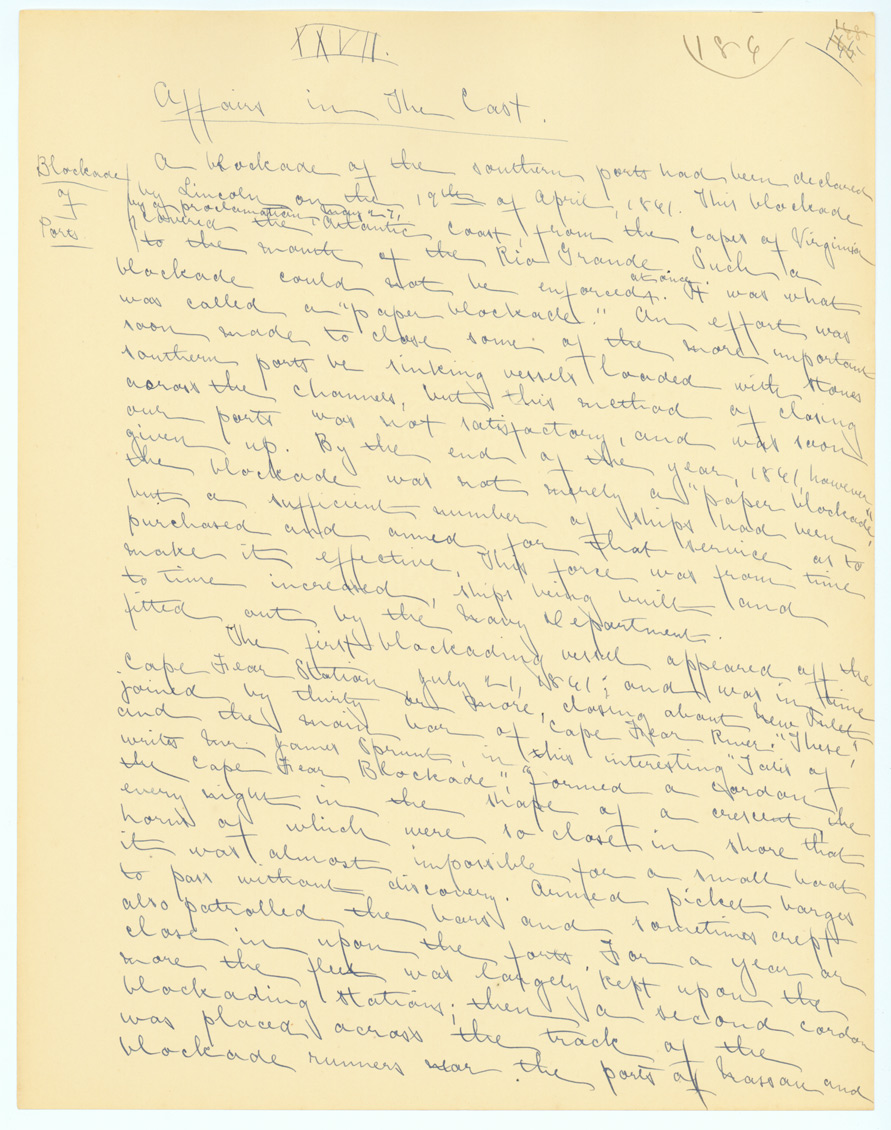 XXVII.
186
Affairs in The East.
Blockade
of
Ports.
A blockade of the southern ports had been declared
by Lincoln on the 19th of April, 1861. This blockade
by a proclamation May 27,
covered the Atlantic coast from the capes of Virginia
to the mouth of the Rio Grande. Such a
blockade could not be enforced at once. It was what
was called a "paper blockade." An effort was
soon made to close some of the more important
southern ports be sinking vessels loaded with stones
across the channels, but this method of closing
our ports was not satisfactory, and was soon
given up. By the end of the year, 1861, however,
the blockade was not merely a "paper blockade",
but a sufficient number of ships had been
purchased and armed for that service as to
make it effective. This force was from time
to time increased, ships being built and
fitted out by the Navy Department.
The first blockading vessel appeared off the
Cape Fear Station July 21, 1861; and was in time
joined by thirty or more, closing about New Inlet
and the main bar of Cape Fear River. "These",
writes Mr. James Sprunt, in this interesting "Tales of
the Cape Fear Blockade", "formed a cordon
every night in the shape of a crescent, the
horns of which were so close in shore that
it was almost impossible for a small boat
to pass without discovery. Armed picket barges
also patrolled the bars and sometimes crept
close in upon the forts. For a year or
more the fleet was largely kept upon the
blockading stations; then a second cordon
was placed across the track of the
blockade runners near the ports of Nassau and